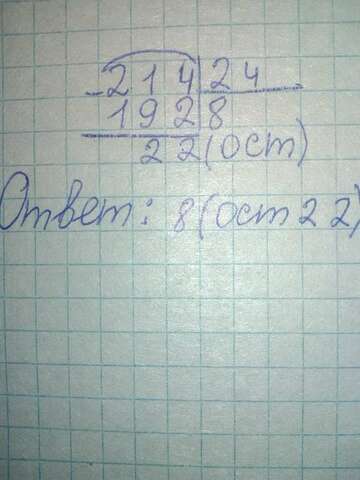 -214|24
192|8
22(ост)
Ответ: 8(ост 22)